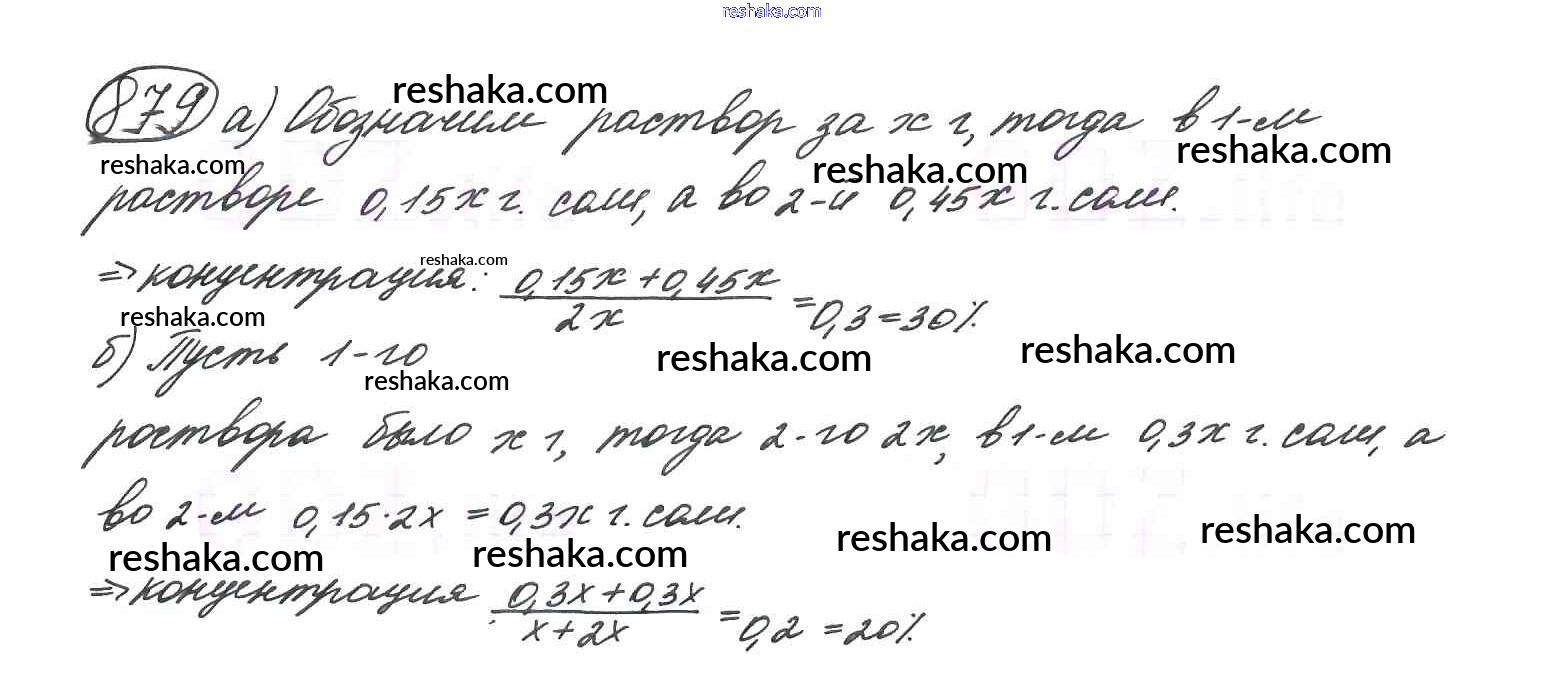 reshaka.com
879 а) Обозначим раствор за х г, тогда в 1-м
reshaka.com
reshaka.com
reshaka.com
reshaka.com
растворе 0,15х г. соли, а во 2-й 0,45х г. соли.
reshaka.com
⇒ концентрация: (0,15х + 0,45х)/2х = 0,3 = 30%
reshaka.com
reshaka.com
reshaka.com
б) Пусть 1-го
reshaka.com
раствора было х г, тогда 2-го 2х, в 1-м 0,3х г. соли, а
во 2-м 0,15·2х = 0,3х г. соли.
reshaka.com
reshaka.com
reshaka.com
reshaka.com
⇒ концентрация (0,3х + 0,3х)/(х + 2х) = 0,2 = 20%